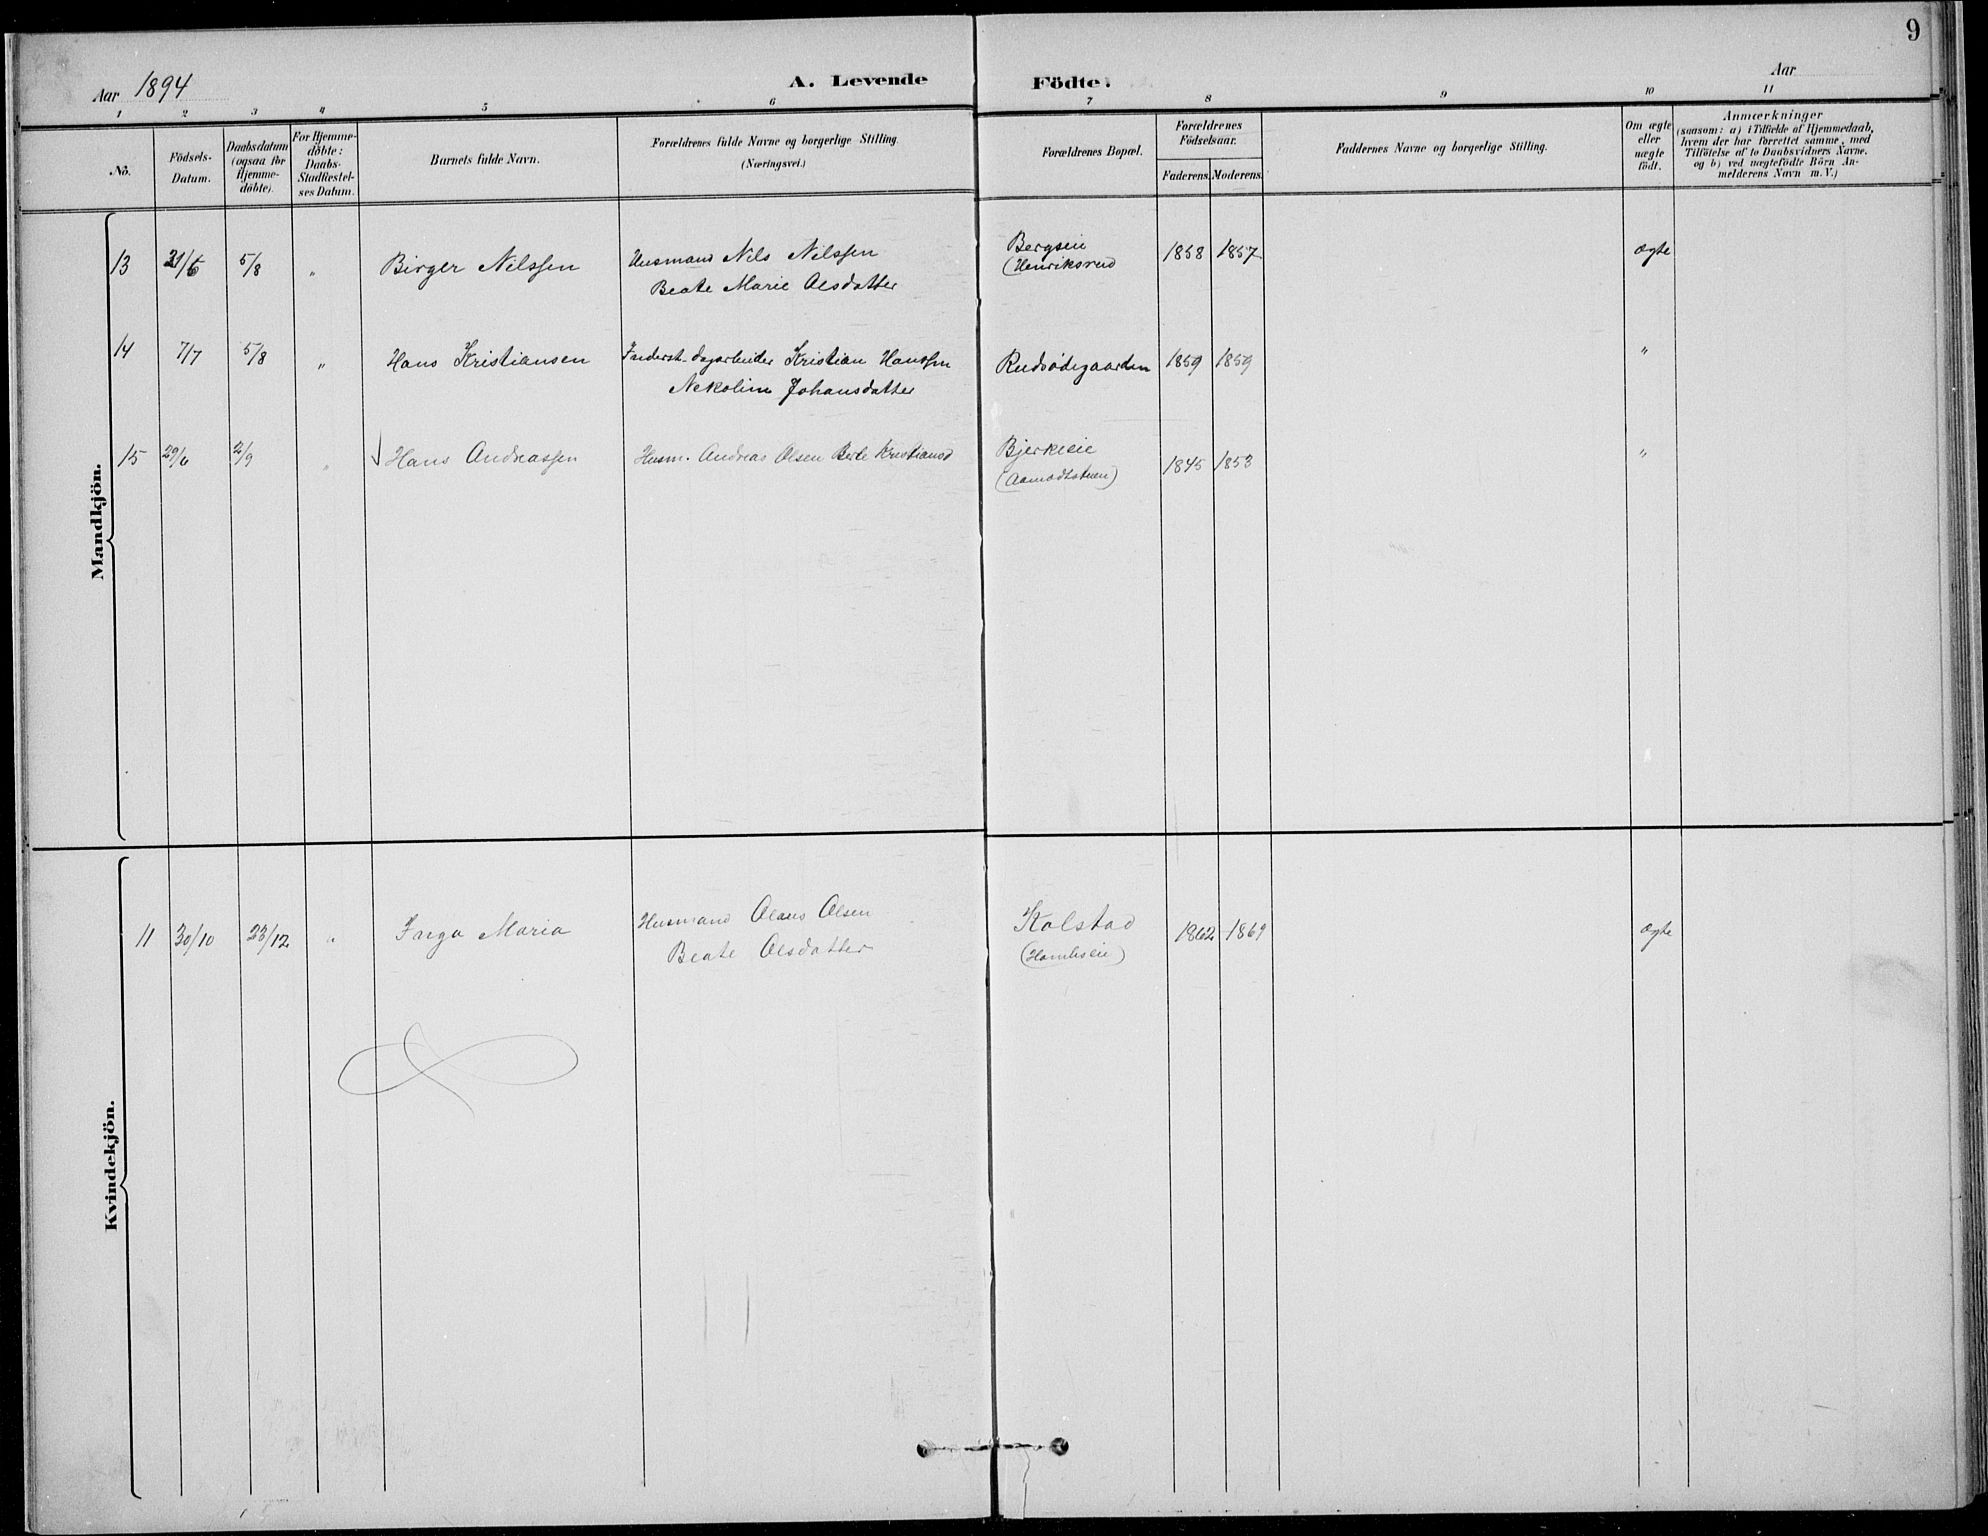 9
Aar 1894
A. Levende
Födte.
Aar
1 2 3 4 5 6 7 8 9 10 11
No.
Födsels-Datum.
Daabsdatum (ogsaa for Hjemme-döbte).
For Hjemme-döbte: Daabs-Stadfæstel-ses Datum.
Barnets fulde Navn.
Forældrenes fulde Navne og borgerlige Stilling.
(Næringsvei.)
Forældrenes Bopæl.
Forældrenes Födselsaar.
Faderens. Moderens.
Faddernes Navne og borgerlige Stilling.
Om ægte eller uægte födt.
Anmærkninger
(saasom: a) i Tilfælde af Hjemmedaab,
hvem der har forrettet samme, med
Tilföielse af to Daabsvidners Navne.
og b) ved uægtefödte Börn An-
melderens Navn m. V.)
Mandkjön.
13 21/6 5/8 " Birger Nilssen Husmand Nils Nilssen Bergseie 1858 1857 ægte
Beate Marie Olsdatter (Henriksrud
14 7/7 5/8 " Hans Kristiansen Inderst. dagarbeider Kristian Hanssen Rudsødegaarden 1859 1859 "
Nekoline Johansdatter
15 29/6 2/9 " Hans Andreassen Husm. Andreas Olsen Berte Kristiansd Bjerkeeie 1845 1853 "
(Aamodtstuen)
Kvindekjön.
11 30/10 23/12 " Inga Maria Husmand Olaus Olsen Kolstad 1862 1869 ægte
Beate Olsdatter